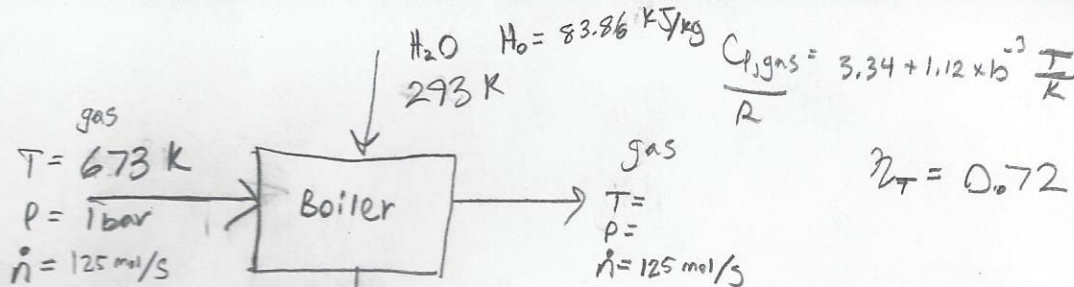 H₂O H₀ = 83.86 kJ/kg
293 K
Cp,gas/R = 3.34 + 1.12 x 10⁻³ T/K
gas
T = 673 K
P = 1 bar
ṅ = 125 mol/s
Boiler
gas
T =
P =
ṅ = 125 mol/s
η_T = 0.72